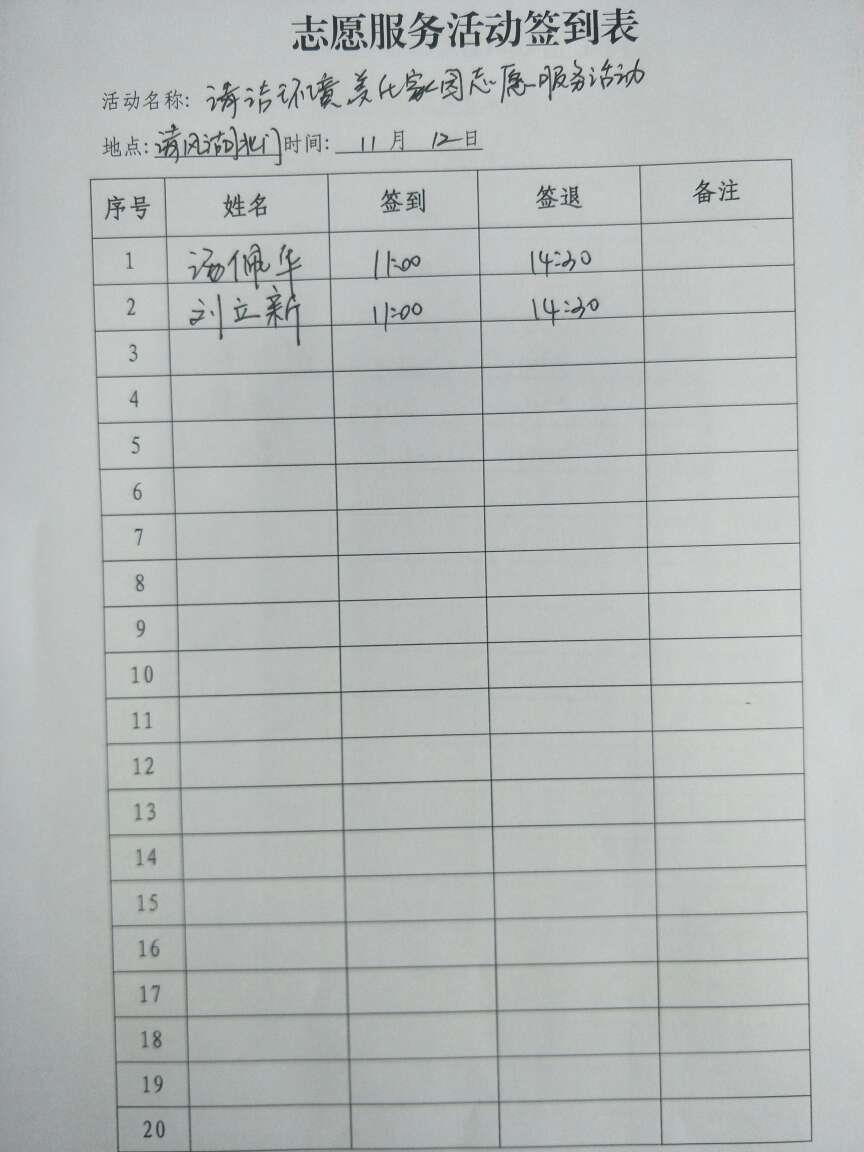 志愿服务活动签到表
活动名称: 清洁环境美化家园志愿服务活动
地点: 清风湖北门 时间: 11 月 12 日
序号 姓名 签到 签退 备注
1 汤佩华 11:00 14:30
2 刘立新 11:00 14:30
3
4
5
6
7
8
9
10
11
12
13
14
15
16
17
18
19
20